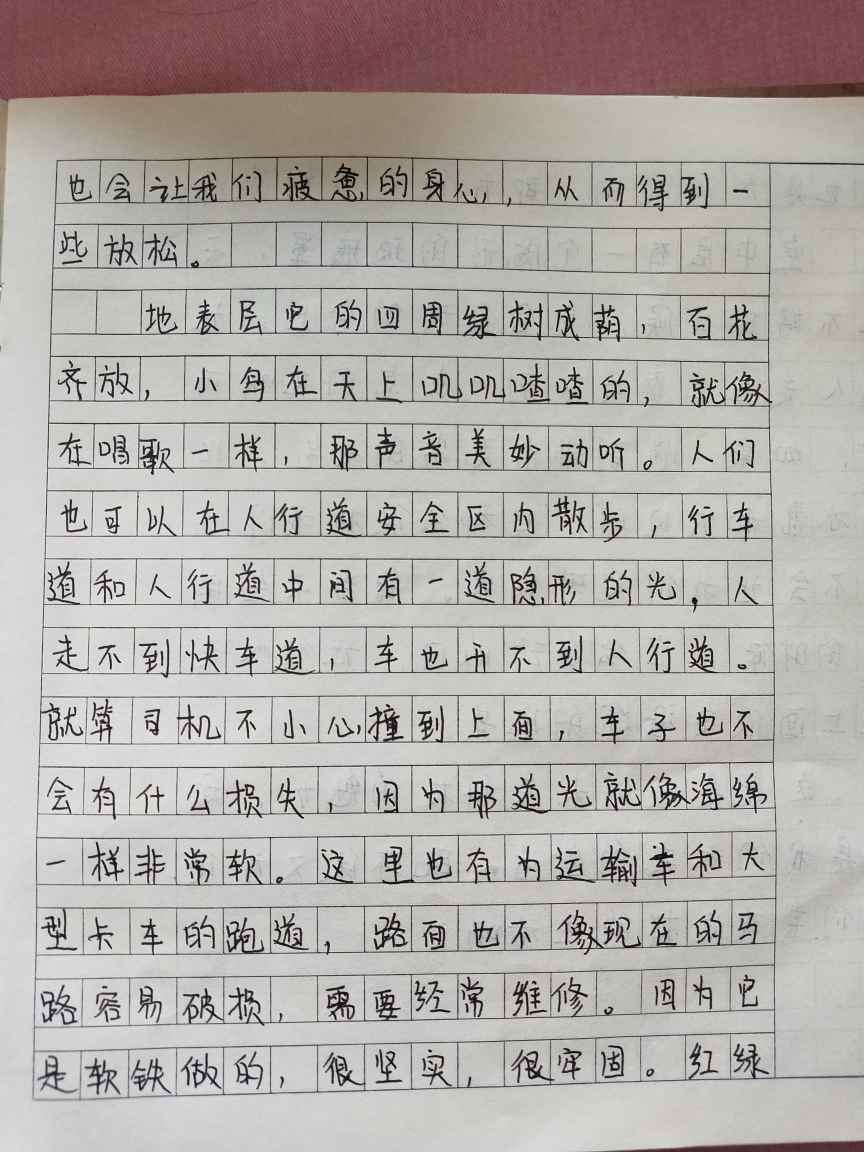 也会让我们疲惫的身心，从而得到一
些放松。
地表层它的四周绿树成荫，百花
齐放，小鸟在天上叽叽喳喳的，就像
在唱歌一样，那声音美妙动听。人们
也可以在人行道安全区内散步，行车
道和人行道中间有一道隐形的光，人
走不到快车道，车也开不到人行道。
就算司机不小心撞到上面，车子也不
会有什么损失，因为那道光就像海绵
一样非常软。这里也有为运输车和大
型卡车的跑道，路面也不像现在的马
路容易破损，需要经常维修。因为它
是软铁做的，很坚实，很牢固。红绿